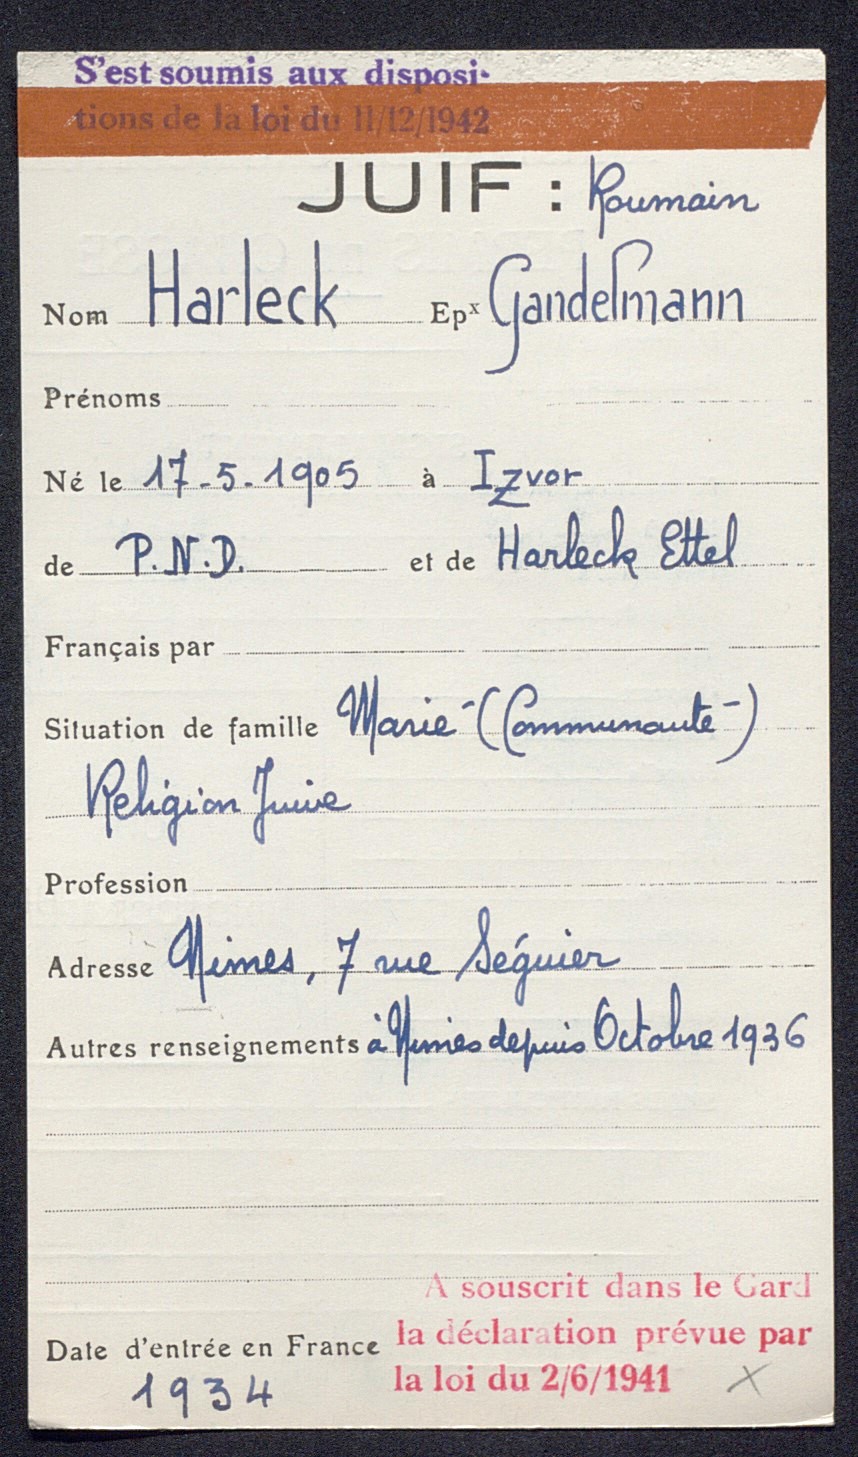 S'est soumis aux disposi-
tions de la loi du 11/12/1942
JUIF : Roumain
Nom Harleck Epx Gandelmann
Prénoms
Né le 17-5-1905 à Izvor
de P.N.D. et de Harleck Ettel
Français par
Situation de famille Marié (Communauté)
Religion Juive
Profession
Adresse Nimes, 7 rue Séguier
Autres renseignements à Nimes depuis Octobre 1936
A souscrit dans le Gard
Date d'entrée en France la déclaration prévue par
1934 la loi du 2/6/1941 X